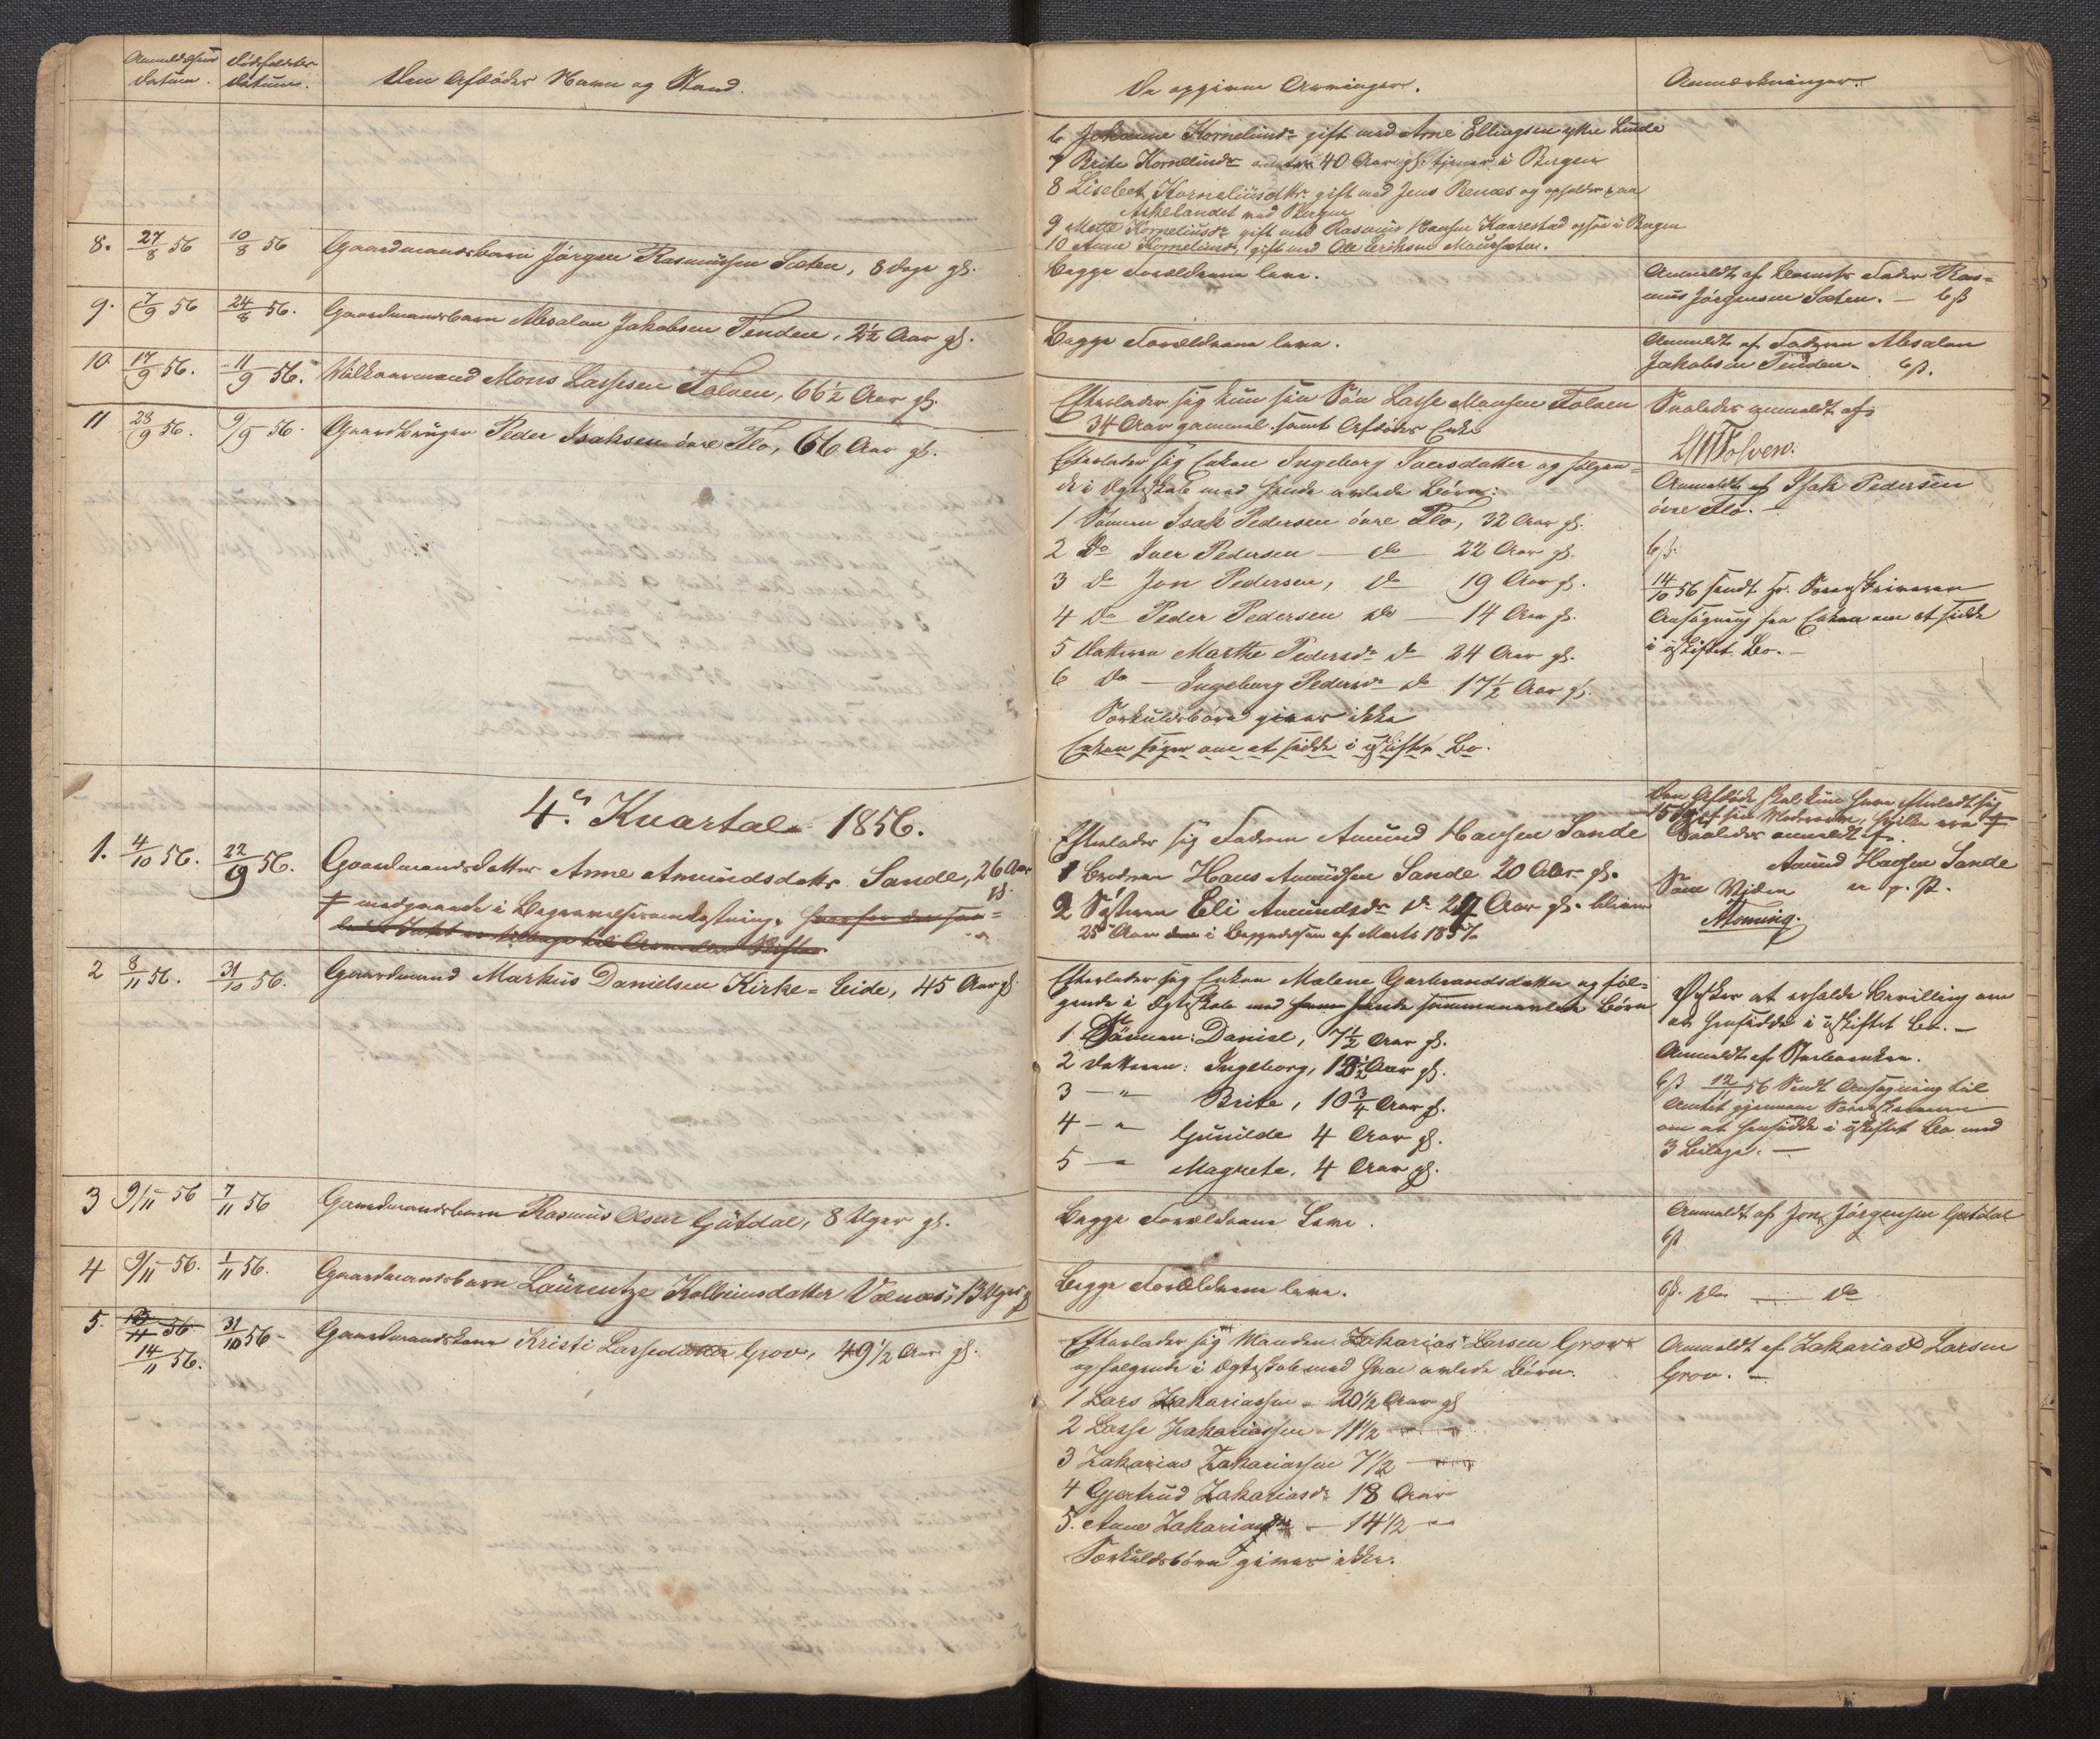 Anmeldelsens Datum.
Dødsfaldets Datum.
Den Afdødes Navn og Stand.
De opgivne Arvinger.
Anmærkninger.
6 Johanne Korneliusdr gift med Arne Ellingsen ytre Lunde
7 Brite Korneliusdr omtr 40 Aar gl. tjener i Bergen
8 Lisebet Korneliusdtr gift med Jens Renæs og opholder paa
Askelandet ved Bergen
9 Mette Korneliusdr gift med Rasmus Hansen Kaarestad i Bergen
10 Anne Korneliusdr, gift med Ole Eriksen Maursæter.
8. 27/8 56 10/8 56 Gaardmandsbarn Jørgen Rasmussen Sæten, 8 Dage gl.
Begge Forældrene leve.
Anmeldt af Barnets Fader Ras=
mus Jørgensen Sæten. — bß
9. 7/9 56 24/8 56. Gaardmandsbarn Absalon Jakobsen Tenden, 2½ Aar gl.
Begge Forældrene leve.
Anmeldt af Faderen Absalon
Jakobsen Tenden. bß.
10 17/9 56. 11/9 56. Vilkaarmand Mons Lassesen Folven, 66½ Aar gl.
Efterlader sig kun sin Søn Lasse Monsen Folven
34 Aar gammel samt Afdødes Enke
Saaledes anmeldt af
LMFolven.
11 28/9 56. 9/9 56. Gaardbruger Peder Isaksen øvre Flo, 66 Aar gl.
Efterlader sig Enken Ingeborg Iversdatter og følgen=
de i Ægteskab med hende avlede Børn:
1 Sønnen Isak Pedersen øvre Flo, 32 Aar gl.
2 Do Iver Pedersen — do — 22 Aar gl.
3 do Jon Pedersen, do 19 Aar gl.
4 do Peder Pedersen do — 14 Aar gl.
5 Datteren Marthe Pedersdr do 24 Aar gl.
6 do — Ingeborg Pedersdr do 17½ Aar gl.
Særkuldsbørn gives ikke
Enken søger om at sidde i uskiftet Bo.
Anmeldt af Isak Pedersen
øvre Flo. —
bß.
14/10 56 sendt Hr. Sorenskriveren
Ansøgning fra Enken om at sidde
i uskiftet Bo. —
4de Kvartal 1856.
1. 4/10 56. 22/9 56. Gaardmandsdatter Anne Amundsdatter Sande, 26 Aar
gl.
‡ medgaaede i Begravelsesomkostninger
Efterlader sig Faderen Amund Hansen Sande
1 Broderen Hans Amundsen Sande 20 Aar gl.
2 Søsteren Eli Amundsdr do 24 Aar gl. bliver
25 Aar i Begyndelsen af Marts 1857.
Den Afdøde skal kun have efterladt sig
Saaledes anmeldt af
Amund Hansen Sande
m. p. P.
Som Viden
AMoning.
2 8/11 56. 31/10 56. Gaardmand Markus Danielsen Kirke=Eide, 45 Aar gl.
Efterlader sig Enken Malene Garbrandsdatter og føl=
gende i Ægteskab med hende sammenavlede Børn
1 Sønnen: Daniel, 7½ Aar gl.
2 Datteren: Ingeborg, 13½ Aar gl.
3 — " Brite, 10¾ Aar gl.
4 — " Gunilde 4 Aar gl.
5 — " Magrete, 4 Aar gl.
Ønsker at erholde Bevilling om
at hensidde i uskiftet Bo. —
Anmeldt af Sterboenken.
bß 12/11 56 Sendt Ansøgning til
Amtet gjennem Sorenskriveren
om at hensidde i uskiftet Bo med
3 Bilage. —
3 9/11 56 7/11 56 Gaardmandsbarn Rasmus Olsen Gutdal, 8 Uger gl.
Begge Forældrene Leve.
Anmeldt af Jon Jørgensen Gutdal
bß
4 9/11 56. 1/11 56. Gaardmandsbarn Laurentze Kolbeinsdatter Vænæs, 13 Uger gl
Begge Forældrene leve.
bß. do — do
5. 14/11 56. 31/10 56 — Gaardmandskone Kristi Lassedatter Grov, 49½ Aar gl.
Efterlader sig Manden Zakarias Larsen Grov
og følgende i Ægteskab med ham avlede Børn.
1 Lars Zakariassen - 20½ Aar gl
2 Lasse Zakariassen - 11½ —
3 Zakarias Zakariassen 7½ —
4 Gjertrud Zakariasdr 18 Aar
5. Anne Zakariasdr — 14½ —
Særkuldsbørn gives ikke.
Anmeldt af Zakarias Larsen
Grov. —